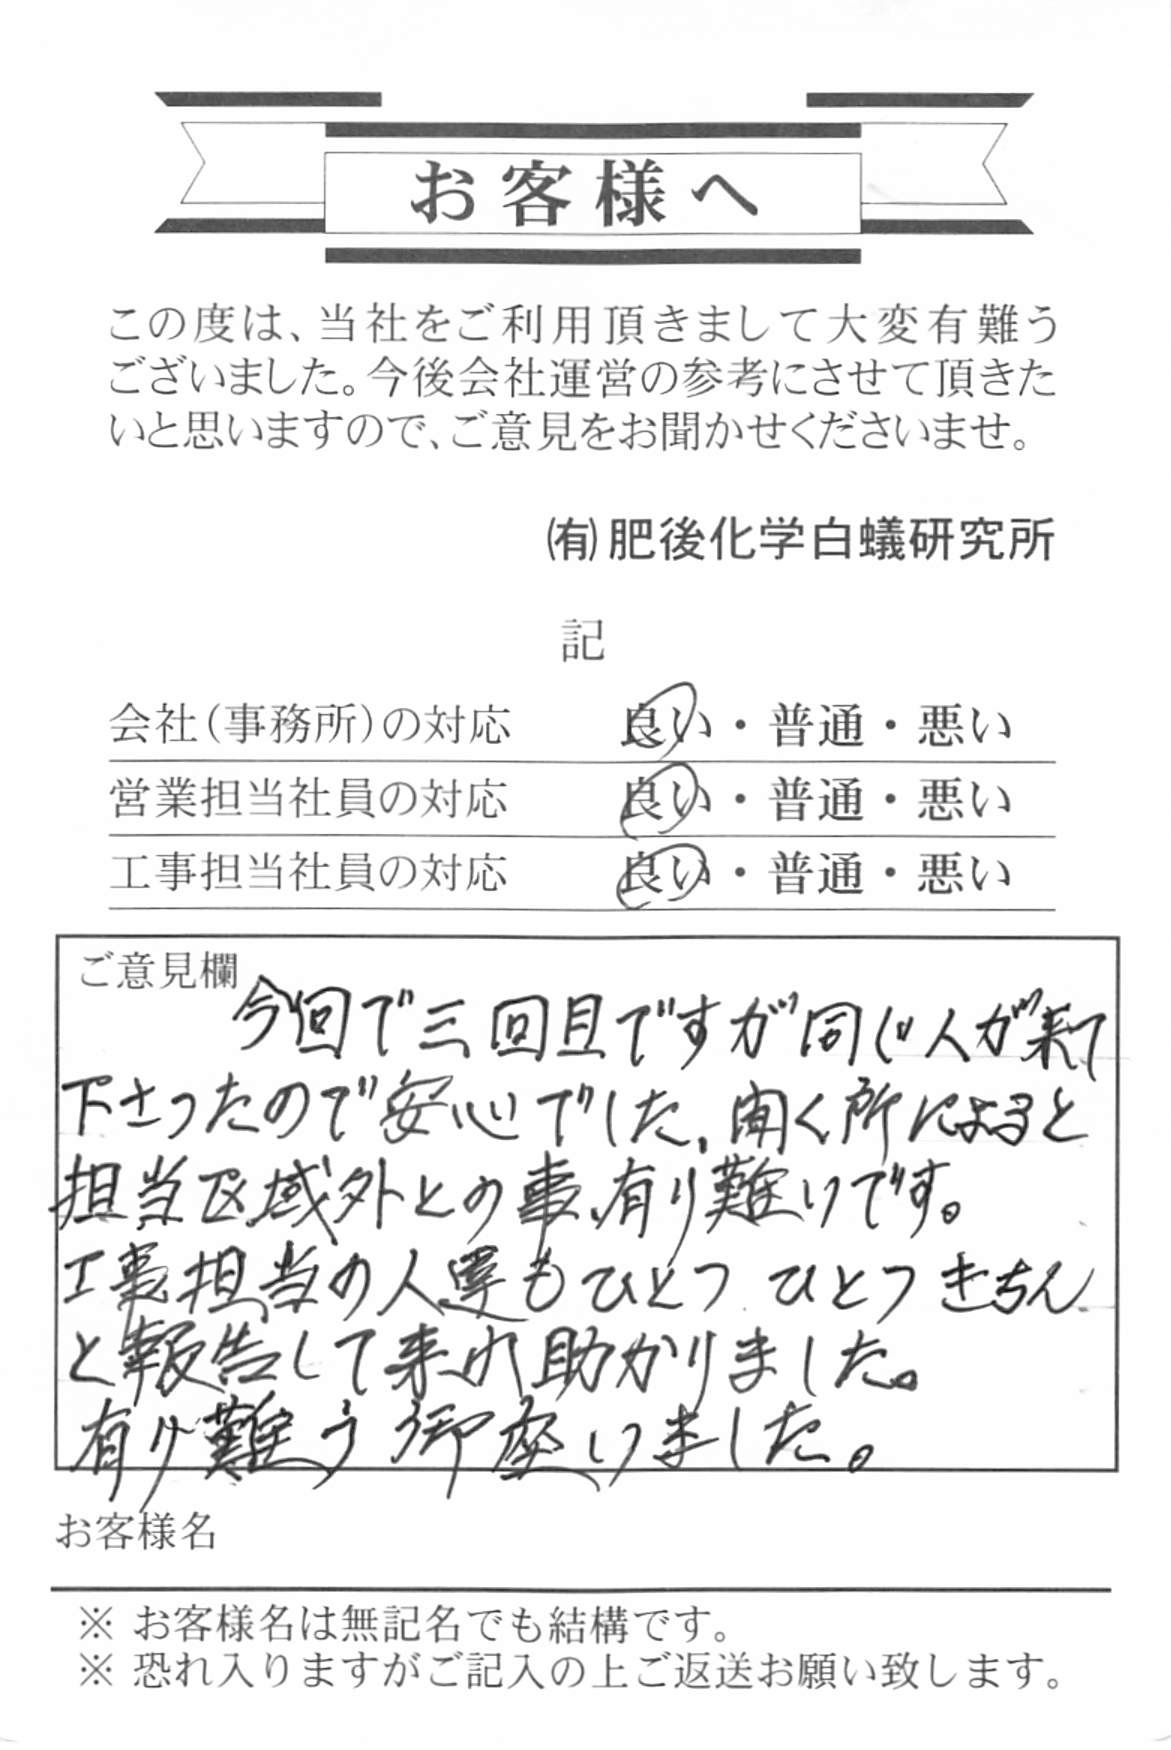 お客様へ
この度は、当社をご利用頂きまして大変有難う
ございました。今後会社運営の参考にさせて頂きた
いと思いますので、ご意見をお聞かせくださいませ。
㈲肥後化学白蟻研究所
記
会社(事務所)の対応 良い・普通・悪い
営業担当社員の対応 良い・普通・悪い
工事担当社員の対応 良い・普通・悪い
ご意見欄
今回で三回目ですが同じ人が来て
下さったので安心でした、聞く所によると
担当区域外との事、有り難いです。
工事担当の人達もひとつ ひとつ きちん
と報告して来れ助かりました。
有り難う御座いました。
お客様名
※ お客様名は無記名でも結構です。
※ 恐れ入りますがご記入の上ご返送お願い致します。